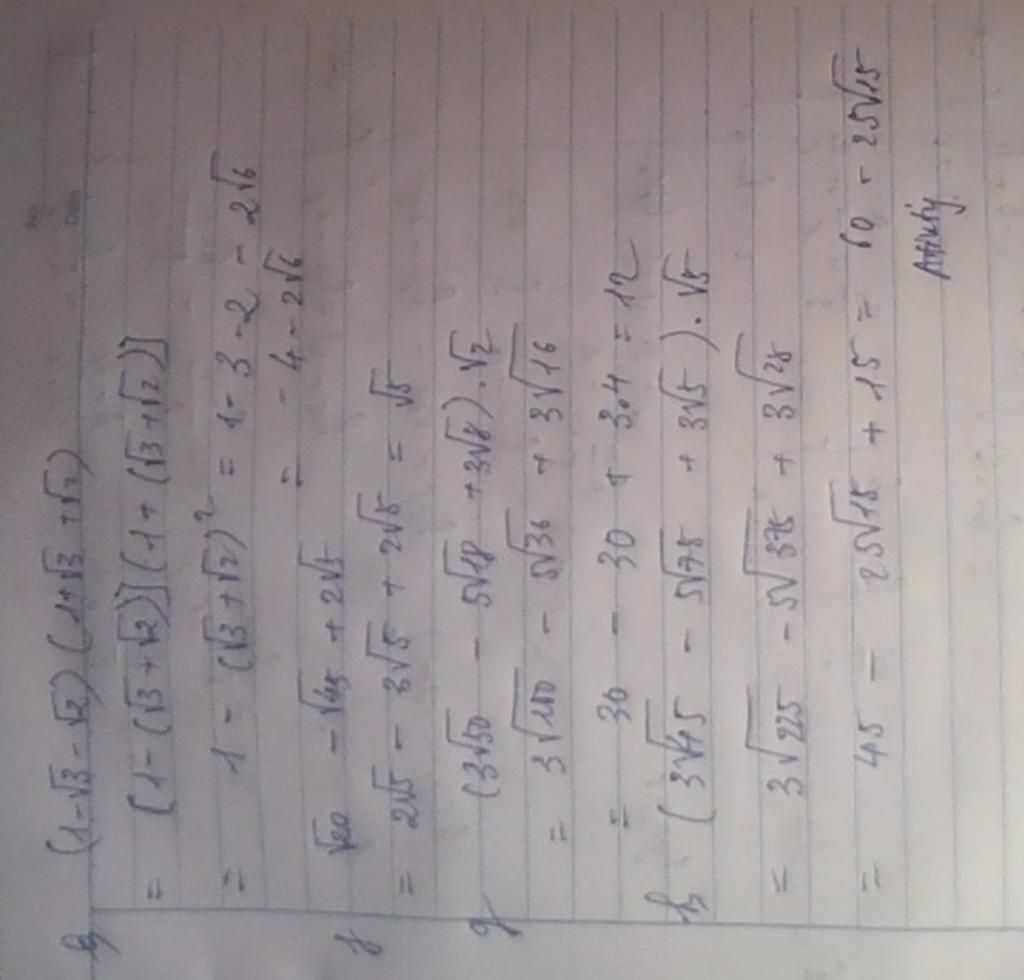 e, (1-√3-√2)(1+√3+√2)
= [1-(√3+√2)][1+(√3+√2)]
= 1-(√3+√2)² = 1-3-2-2√6
= -4-2√6
f √20 - √45 + 2√5
= 2√5 - 3√5 + 2√5 = √5
g (3√50 - 5√18 + 3√8).√2
= 3√100 - 5√36 + 3√16
= 30 - 30 + 3.4 = 12
h (3√45 - 5√75 + 3√5).√5
= 3√225 - 5√375 + 3√25
= 45 - 25√15 + 15 = 60 - 25√15